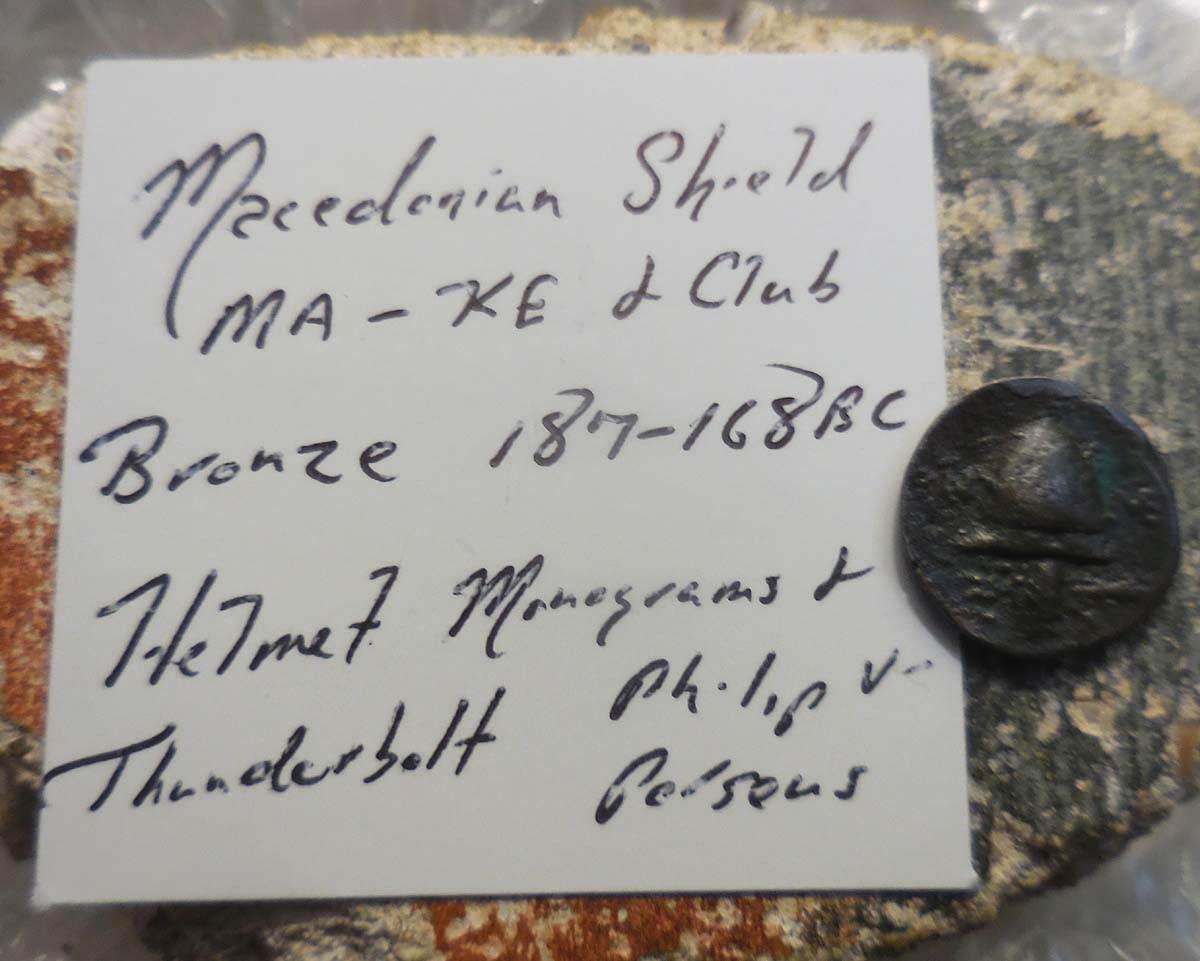 Macedonian Shield
MA - KE & Club
Bronze 187-168 BC
Helmet Monograms &
Thunderbolt Philip V-
Perseus